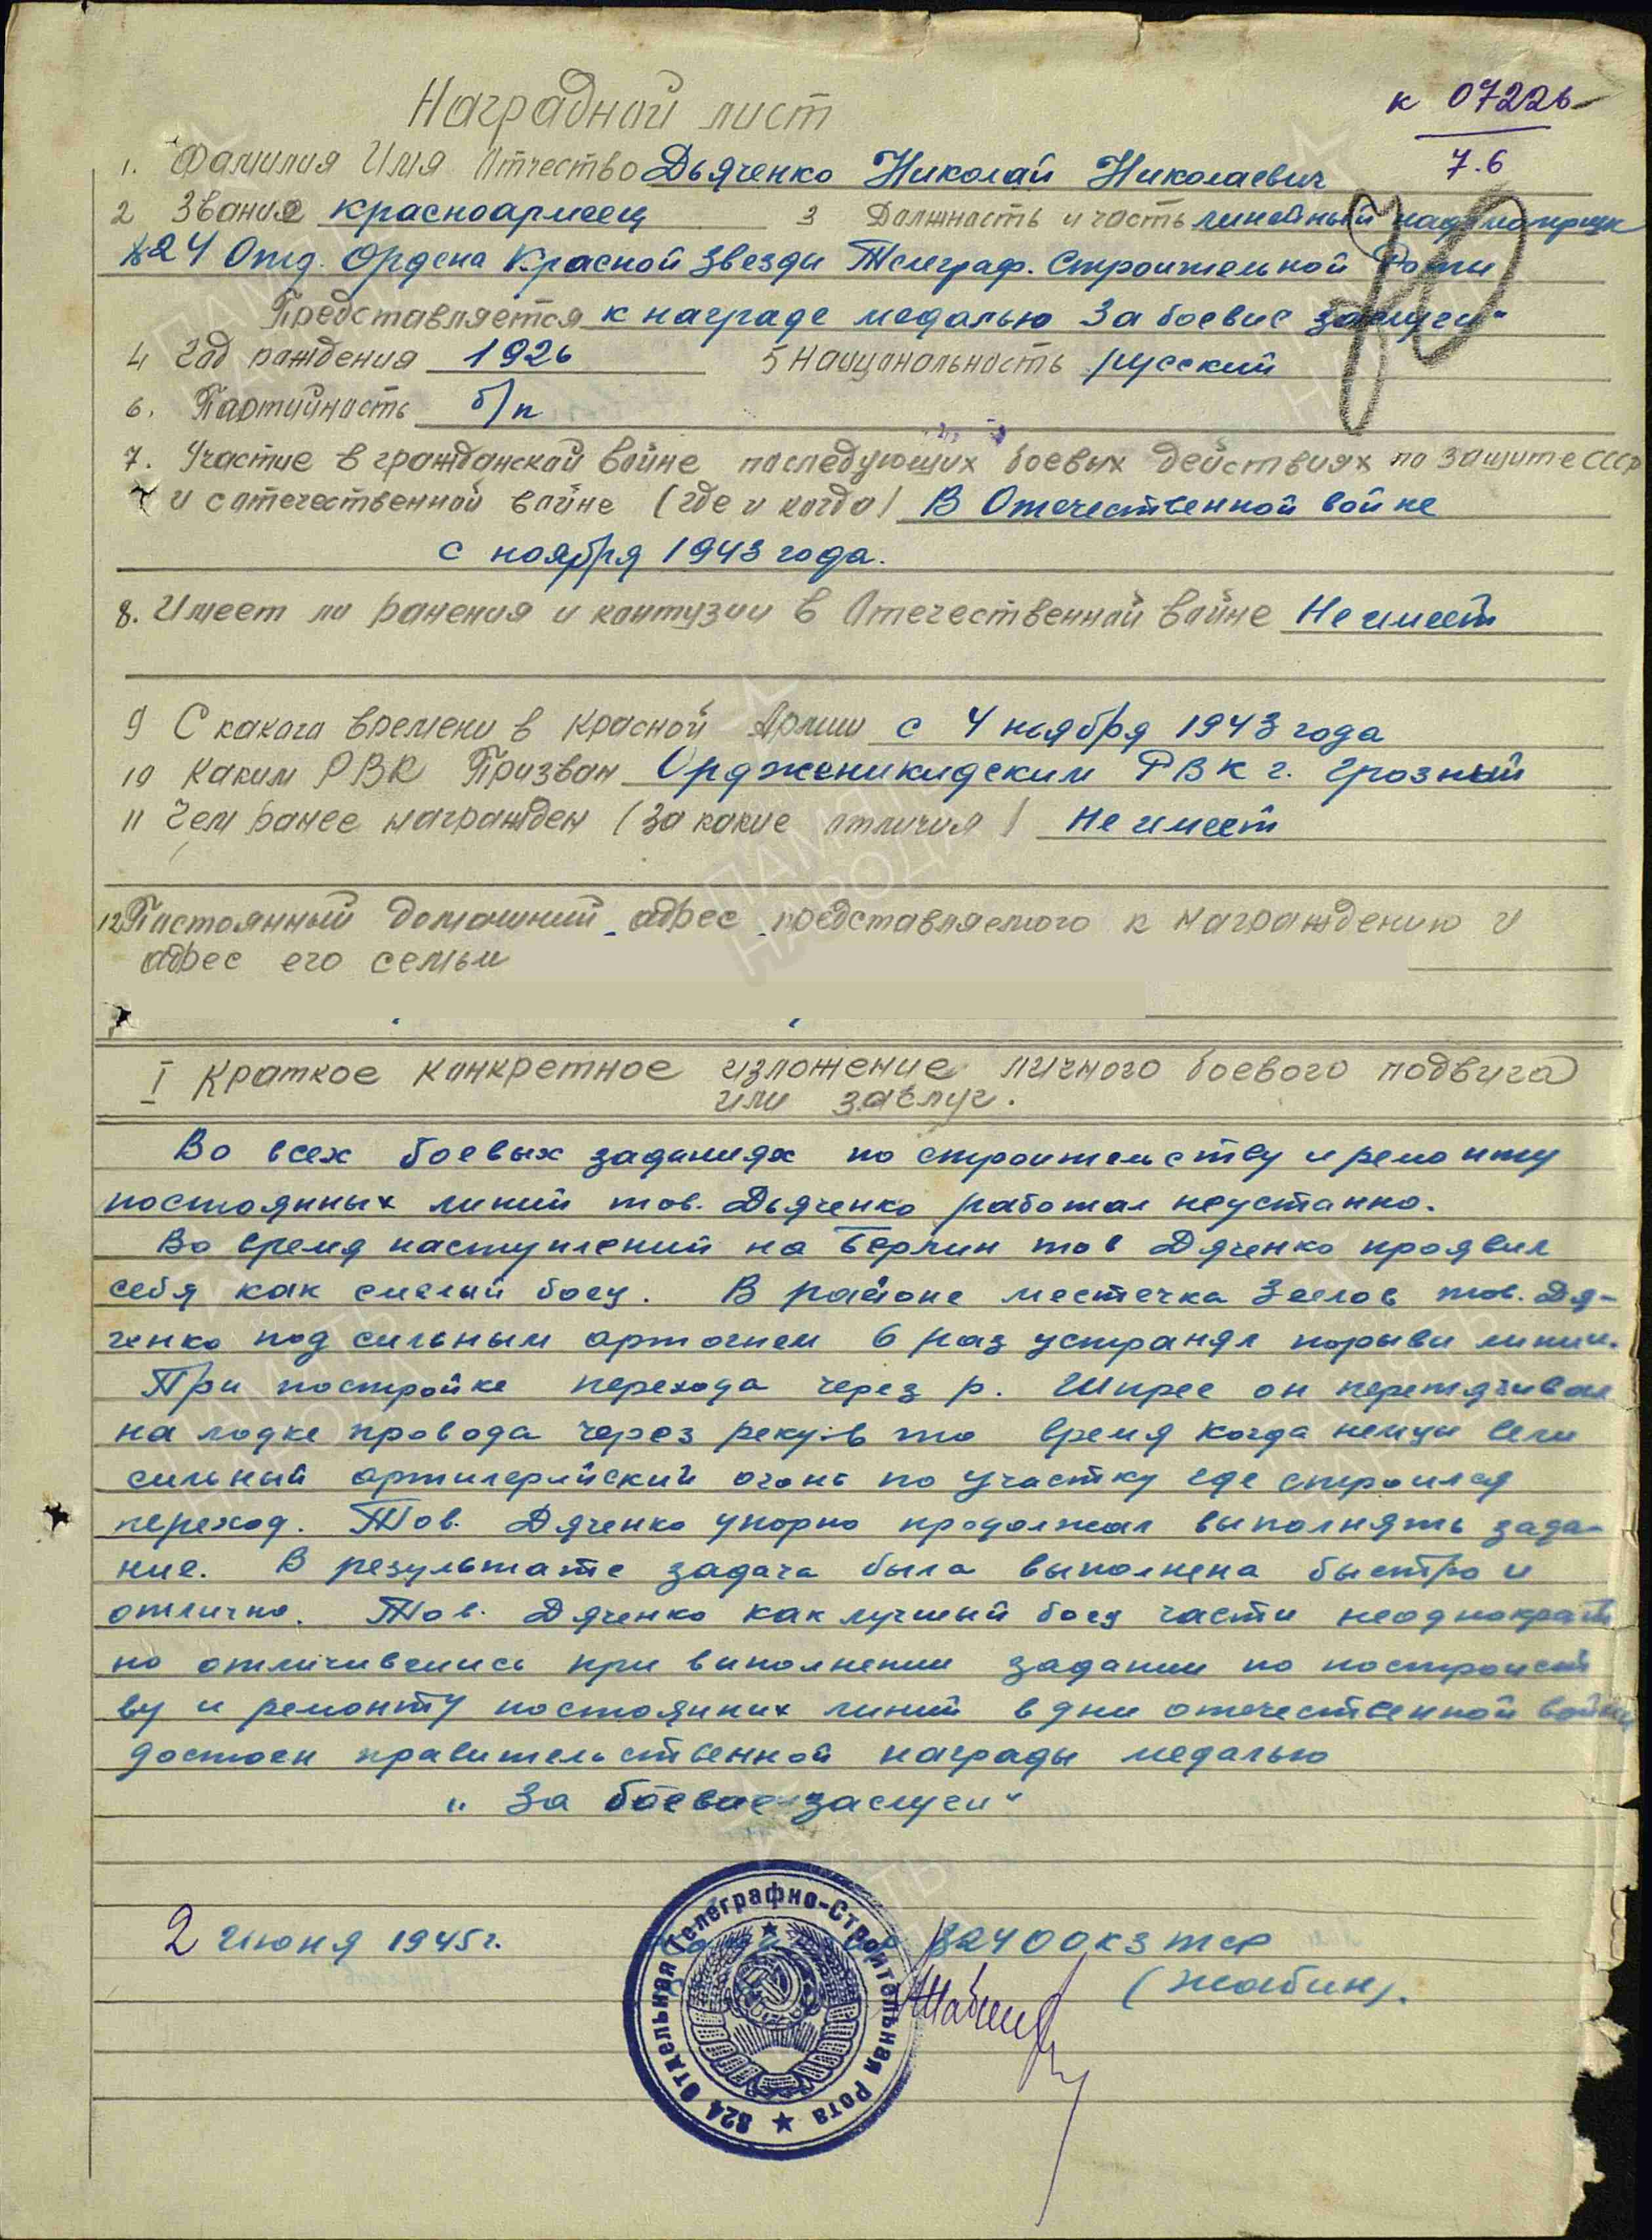 Наградной лист
к 07226
7.6
1. Фамилия Имя Отчество Дьяченко Николай Николаевич
2 Звание красноармеец 3 Должность и часть линейный надсмотрщик
824 Отд. Ордена Красной Звезды Телеграф. Строительной Роты
Представляется к награде медалью За боевые заслуги"
4 Год рождения 1926 5 Национальность русский
6. Партийность б/п
7. Участие в гражданской войне последующих боевых действиях по защите СССР
и отечественной войне (где и когда) В Отечественной войне
с ноября 1943 года.
8. Имеет ли ранения и контузии в Отечественной войне Не имеет
9 С какого времени в Красной Армии с 4 ноября 1943 года
10 Каким РВК Призван Орджоникидским РВК г. Грозный
11 Чем ранее награжден (за какие отличия) Не имеет
12 Постоянный домашний адрес представляемого к награждению и
адрес его семьи
I Краткое конкретное изложение личного боевого подвига
или заслуг.
Во всех боевых заданиях по строительству и ремонту
постоянных линий тов. Дьяченко работал неустанно.
Во время наступлений на Берлин тов Дяченко проявил
себя как смелый боец. В районе местечка Зеелов тов. Дя-
ченко под сильным артогнем 6 раз устранял порывы линии.
При постройке перехода через р. Шпрее он перетягивал
на лодке провода через реку в то время когда немцы вели
сильный артилерийский огонь по участку где строился
переход. Тов. Дяченко упорно продолжал выполнять зада-
ние. В результате задача была выполнена быстро и
отлично. Тов. Дяченко как лучший боец части неоднократ
но отличившись при выполнении задании по построист
ву и ремонту постоянных линий в дни отечественной войны
достоен правительственной награды медалью
„За боевые заслуги"
2 июня 1945 г. 824 ООКЗ тср
(Жабин).
824 Отдельная Телеграфно-Строительная Рота
ПАМЯТЬ
НАРОДА